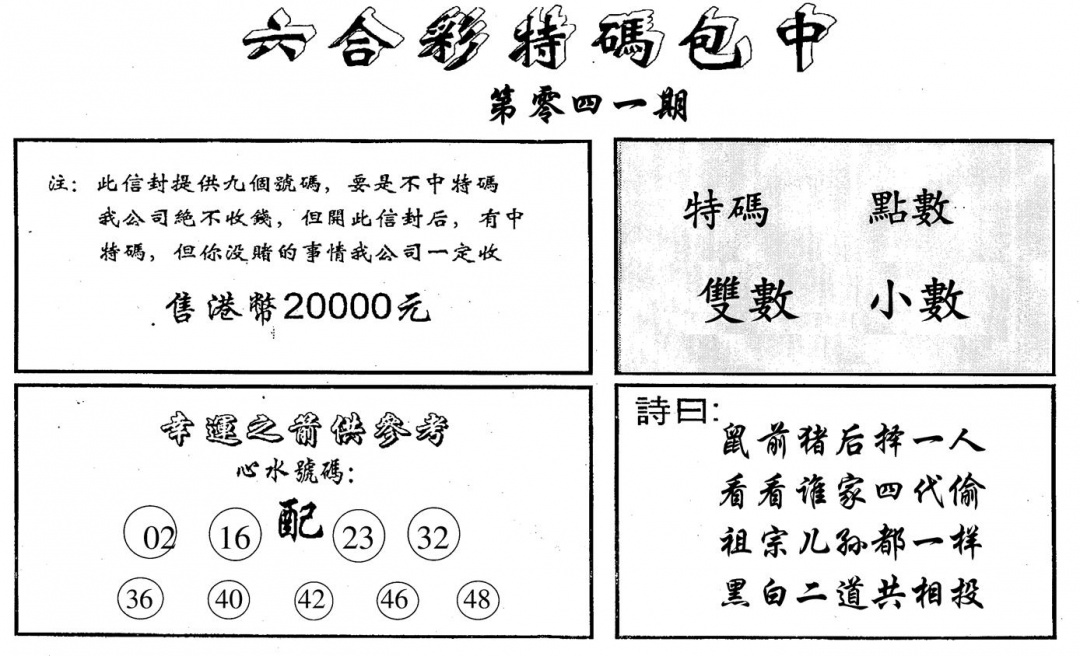 六合彩特碼包中
第零四一期
注：此信封提供九個號碼，要是不中特碼
我公司絕不收錢，但開此信封后，有中
特碼，但你没賭的事情我公司一定收
售港幣20000元
特碼 點數
雙數 小數
幸運之箭供參考
心水號碼：
02 16 配 23 32
36 40 42 46 48
詩曰：
鼠前猪后择一人
看看谁家四代偷
祖宗儿孙都一样
黑白二道共相投